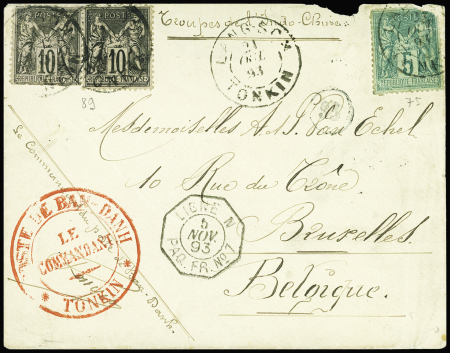 Troupes de l'Indo-Chine
POSTE 10 POSTE 10 REPUBLIQUE FRANÇAISE
5
89
75
LANG-SON
21
OCT.
93
TONKIN
Mesdemoiselles A. & J. Van Echel
10 Rue du Trône
Bruxelles
Belgique.
LIGNE N
5
NOV.
93
PAQ. FR. No 7
POSTE DE BAN-DANH
LE
COMMANDANT
TONKIN
Le Comm du Ban-Danh.